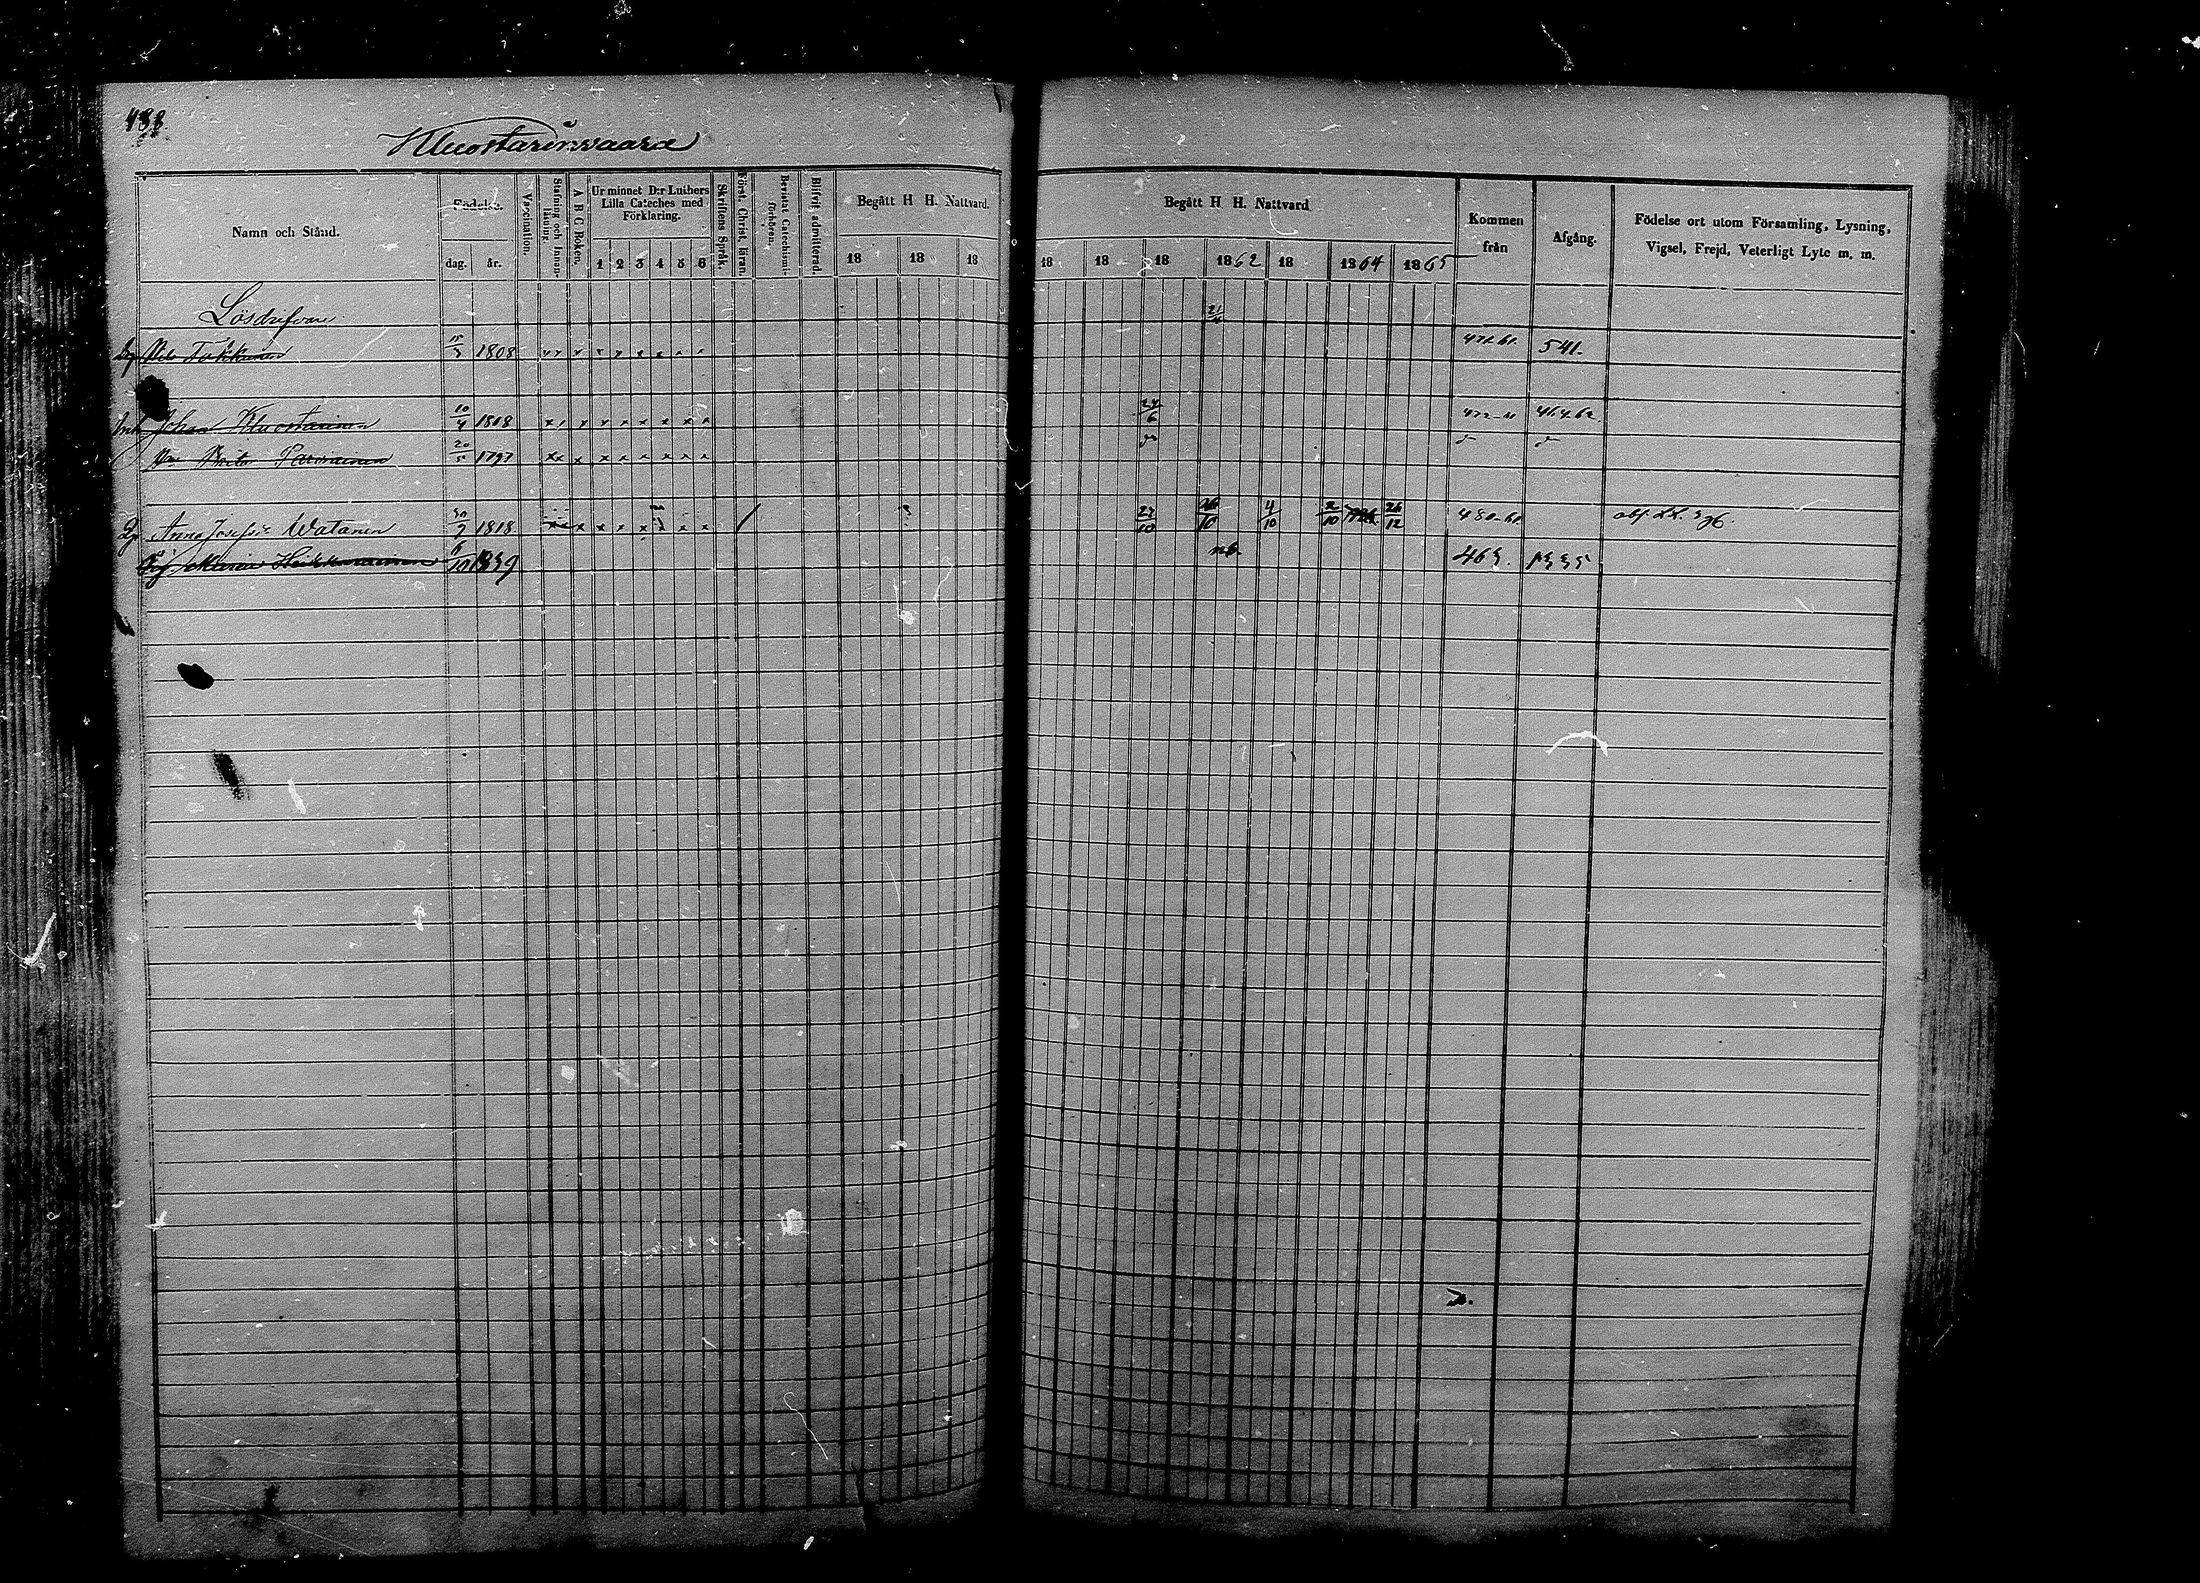 488
Kluostarinvaara
Namn och Stånd.
Födelse.
dag. år.
Vaccination.
Stafning och Innan-läsning.
A B C Boken.
Ur minnet D:r Luthers
Lilla Cateches med
Förklaring.
1 2 3 4 5 6
Skriftens Språk.
Först. Christ. läran.
Bevistat Catechismi-förhören.
Blifvit admitterad.
Begått H H. Nattvard.
18 18 18
Begått H H. Nattvard
18 18 18 1862 18 1864 1865
Kommen
från
Afgång.
Födelse ort utom Församling, Lysning,
Vigsel, Frejd, Veterligt Lyte m. m.
Lösdrifvare
21/4
Tukkunen 1808 x x x x x x x x 541.
Johan Kluostarinen 10/4 1808 x x x x x x x x x 24/6 464.62
Parviainen 20/5 1797 x x x x x x x x x
Anna Josefs: Watanen 1818 x x x x x x x x / 27/10 26/10 4/10 2/10 26/12 480-61
Maria Heikkurainen 6/10 1839 463.